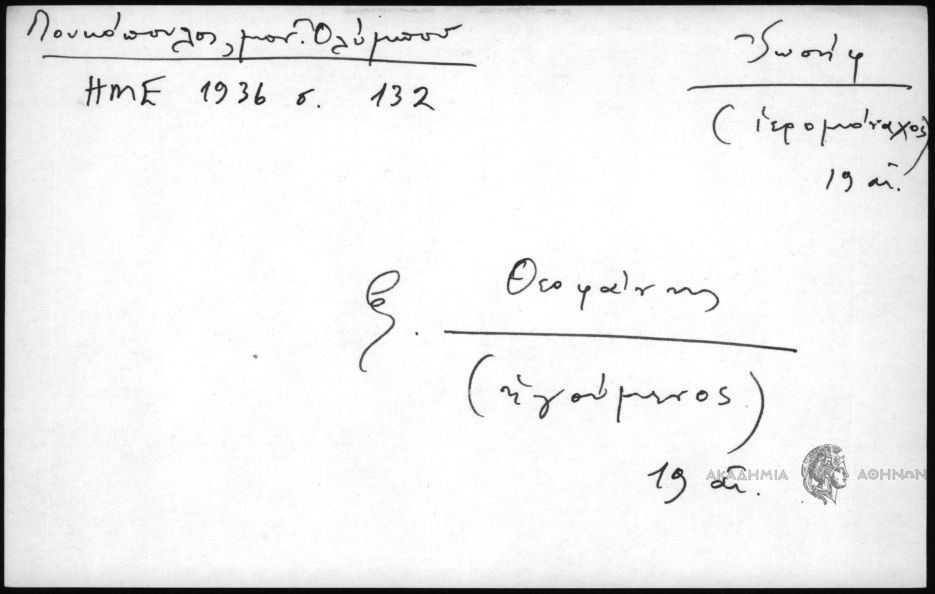 Λουκόπουλος, μον. Ὀλύμπου
ΗΜΕ 1936 σ. 132
Ἰωσήφ
(ἱερομόναχος)
19 αἰ.
ξ. Θεοφάνης
(ἡγούμενος)
19 αἰ.
ΑΚΑΔΗΜΙΑ ΑΘΗΝΩΝ